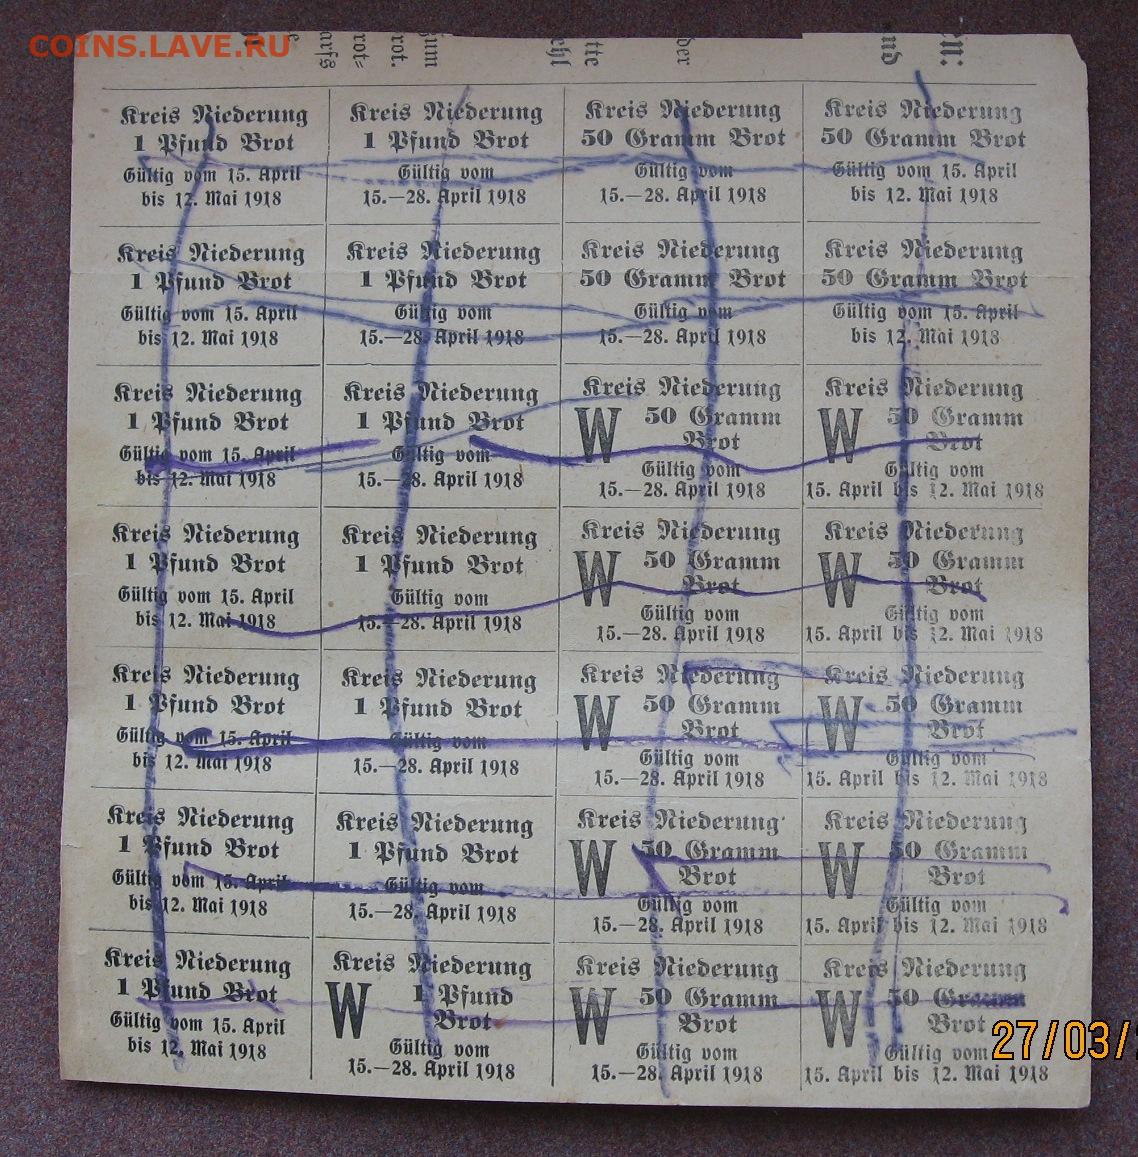 COINS.LAVE.RU
arfs
rot=
rot.
ehl
tte
nd
en:
Kreis Niederung
1 Pfund Brot
Gültig vom 15. April
bis 12. Mai 1918
Kreis Niederung
1 Pfund Brot
Gültig vom
15.—28. April 1918
Kreis Niederung
50 Gramm Brot
Gültig vom
15.—28. April 1918
Kreis Niederung
50 Gramm Brot
Gültig vom 15. April
bis 12. Mai 1918
Kreis Niederung
1 Pfund Brot
Gültig vom 15. April
bis 12. Mai 1918
Kreis Niederung
1 Pfund Brot
Gültig vom
15.—28. April 1918
Kreis Niederung
50 Gramm Brot
Gültig vom
15.—28. April 1918
Kreis Niederung
50 Gramm Brot
Gültig vom 15. April
bis 12. Mai 1918
Kreis Niederung
1 Pfund Brot
Gültig vom 15. April
bis 12. Mai 1918
Kreis Niederung
1 Pfund Brot
Gültig vom
15.—28. April 1918
Kreis Niederung
W 50 Gramm
Brot
Gültig vom
15.—28. April 1918
Kreis Niederung
W 50 Gramm
Brot
Gültig vom
15. April bis 12. Mai 1918
Kreis Niederung
1 Pfund Brot
Gültig vom 15. April
bis 12. Mai 1918
Kreis Niederung
1 Pfund Brot
Gültig vom
15.—28. April 1918
Kreis Niederung
W 50 Gramm
Brot
Gültig vom
15.—28. April 1918
Kreis Niederung
W 50 Gramm
Brot
Gültig vom
15. April bis 12. Mai 1918
Kreis Niederung
1 Pfund Brot
Gültig vom 15. April
bis 12. Mai 1918
Kreis Niederung
1 Pfund Brot
Gültig vom
15.—28. April 1918
Kreis Niederung
W 50 Gramm
Brot
Gültig vom
15.—28. April 1918
Kreis Niederung
W 50 Gramm
Brot
Gültig vom
15. April bis 12. Mai 1918
Kreis Niederung
1 Pfund Brot
Gültig vom 15. April
bis 12. Mai 1918
Kreis Niederung
1 Pfund Brot
Gültig vom
15.—28. April 1918
Kreis Niederung
W 50 Gramm
Brot
Gültig vom
15.—28. April 1918
Kreis Niederung
W 50 Gramm
Brot
Gültig vom
15. April bis 12. Mai 1918
Kreis Niederung
1 Pfund Brot
Gültig vom 15. April
bis 12. Mai 1918
Kreis Niederung
W 1 Pfund
Brot
Gültig vom
15.—28. April 1918
Kreis Niederung
W 50 Gramm
Brot
Gültig vom
15.—28. April 1918
Kreis Niederung
W 50 Gramm
Brot
Gültig vom
15. April bis 12. Mai 1918
27/03/